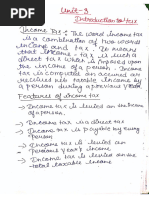 Unit-3
Introduction to tax
Income Tax :- The word income tax
is a combination of two words
income and tax. It means
that income-tax is such a
direct tax which is imposed on the
income of a person. Income
tax is computed on accrued or
received and taxable income by
a person during a previous year
Features of income tax
→ Income tax is levied on the income
of person.
→ Income tax is payable by every
person
→ Income tax is levied on the
Previous Year's income
→ Income tax is levied on the
total taxable income